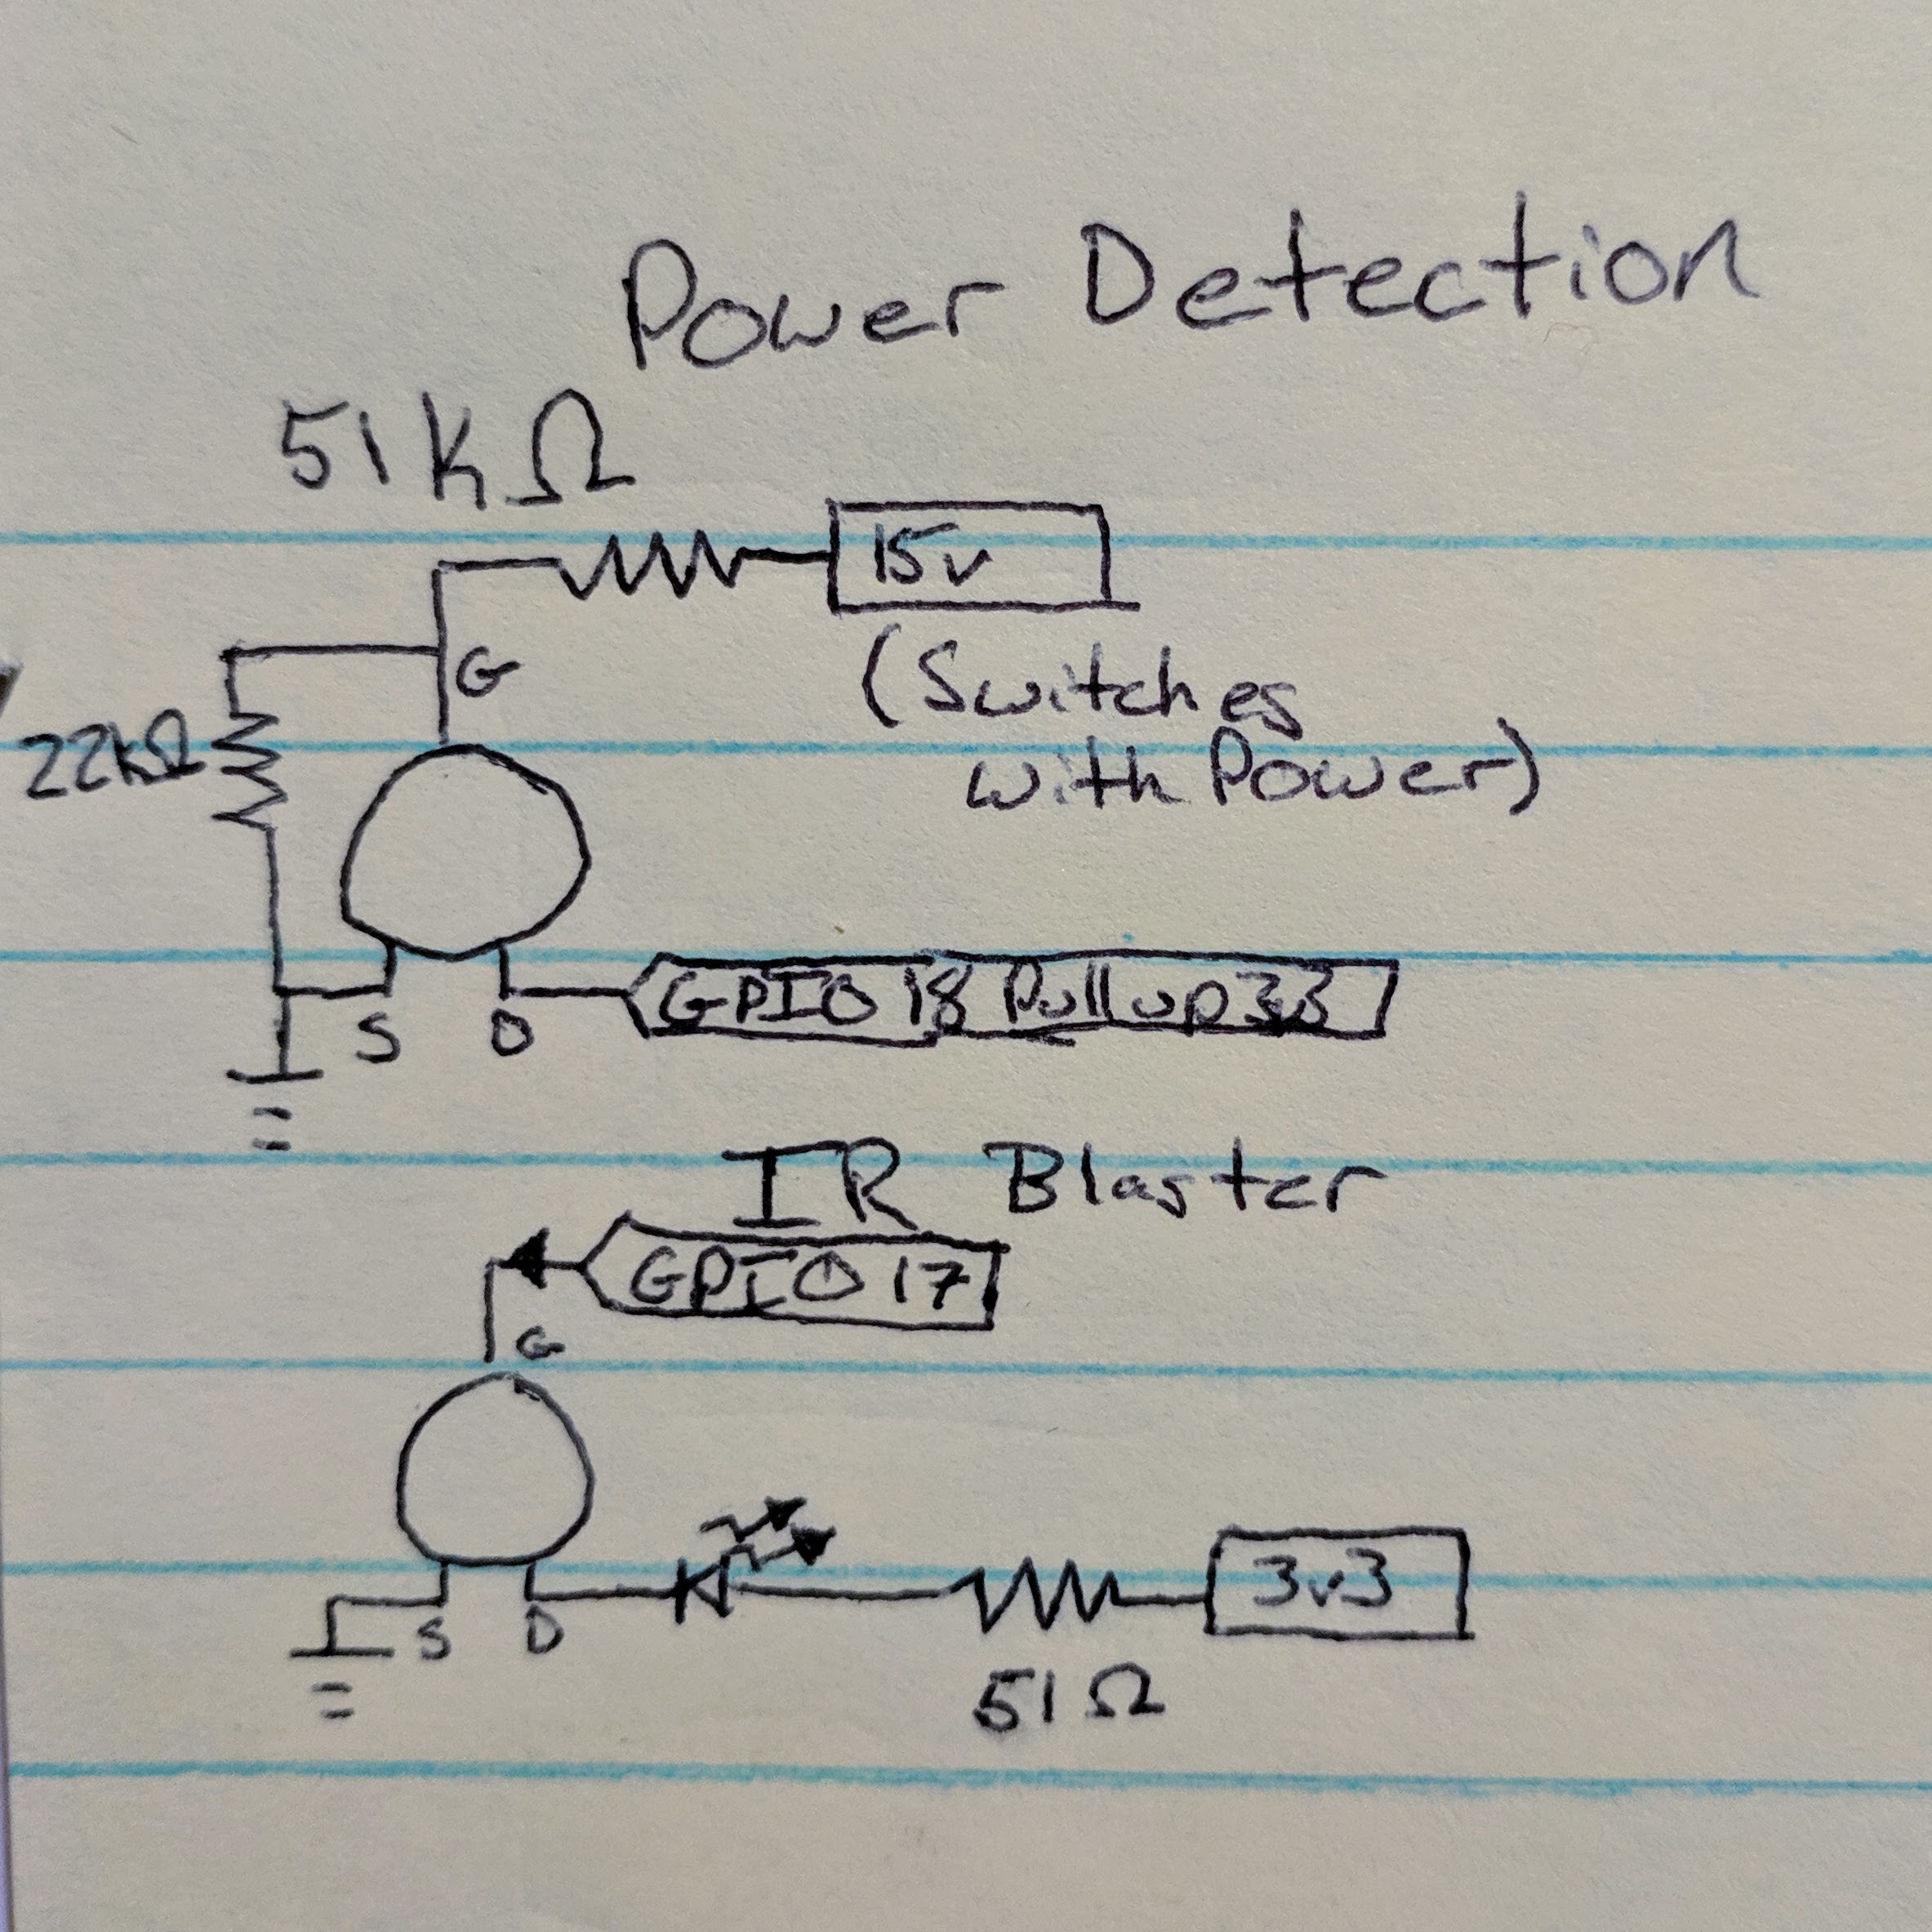 Power Detection
51KΩ
15v
G
(Switches
with Power)
22kΩ
GPIO 18 Pull up 3.3
S D
IR Blaster
GPIO 17
G
3v3
S D
51Ω